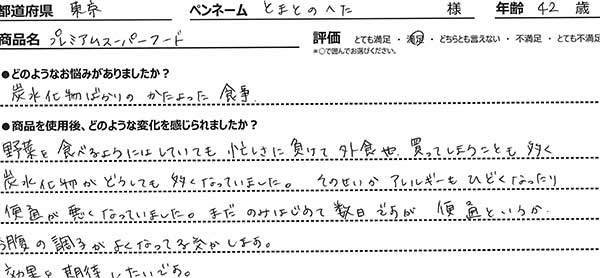 都道府県 東京 ペンネーム とまとのへた 様 年齢 42 歳
商品名 プレミアムスーパーフード 評価 とても満足 ・ 満足 ・ どちらとも言えない ・ 不満足 ・ とても不満足
*○で囲んでお選びください。
●どのようなお悩みがありましたか？
炭水化物ばかりの かたよった 食事.
●商品を使用後、どのような変化を感じられましたか？
野菜を食べるようにはしていても 忙しさに負けて 外食や 買ってしまうことも多く
炭水化物が どうしても 多くなっていました。 そのせいか アレルギーも ひどくなったり
便通が悪くなっていました。まだ のみはじめて 数日ですが 便通というか.
お腹の調子がよくなってる気がします。
効果を期待したいです。